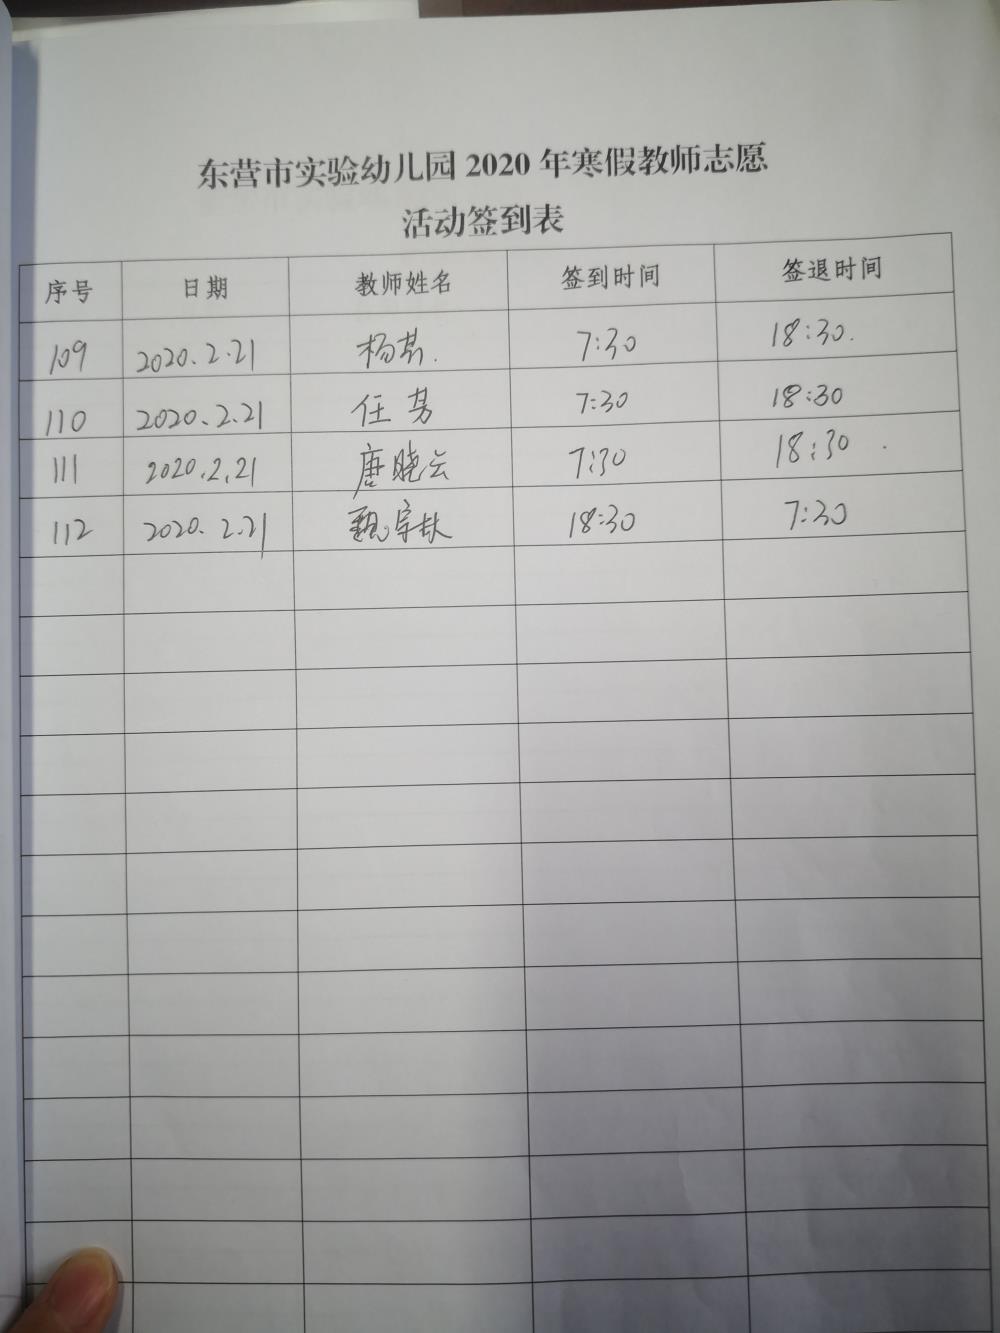 东营市实验幼儿园 2020 年寒假教师志愿
活动签到表
序号 日期 教师姓名 签到时间 签退时间
109 2020.2.21 杨 7:30 18:30.
110 2020.2.21 任芳 7:30 18:30
111 2020.2.21 唐晓云 7:30 18:30
112 2020.2.21 魏宗 18:30 7:30